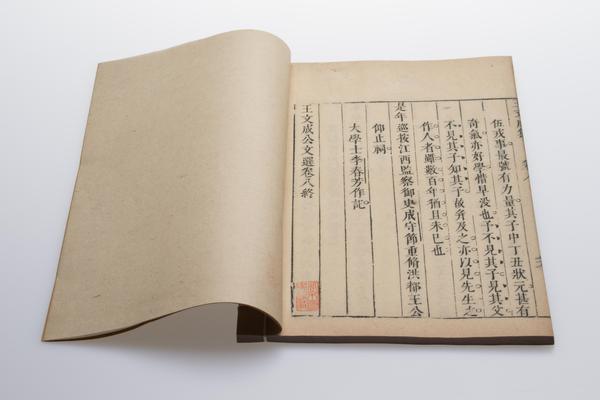 伍戎事最號有力量其子申丁丑狀元甚有
奇氣亦好學惜早没也予不見其子見其文
不見其子知其子故并及之亦以見先生之
作人者雖數百年猶且未已也
是年巡按江西監察御史成守節重脩洪都王公
仰止祠
大學士李春芳作記
王文成公文選卷八終